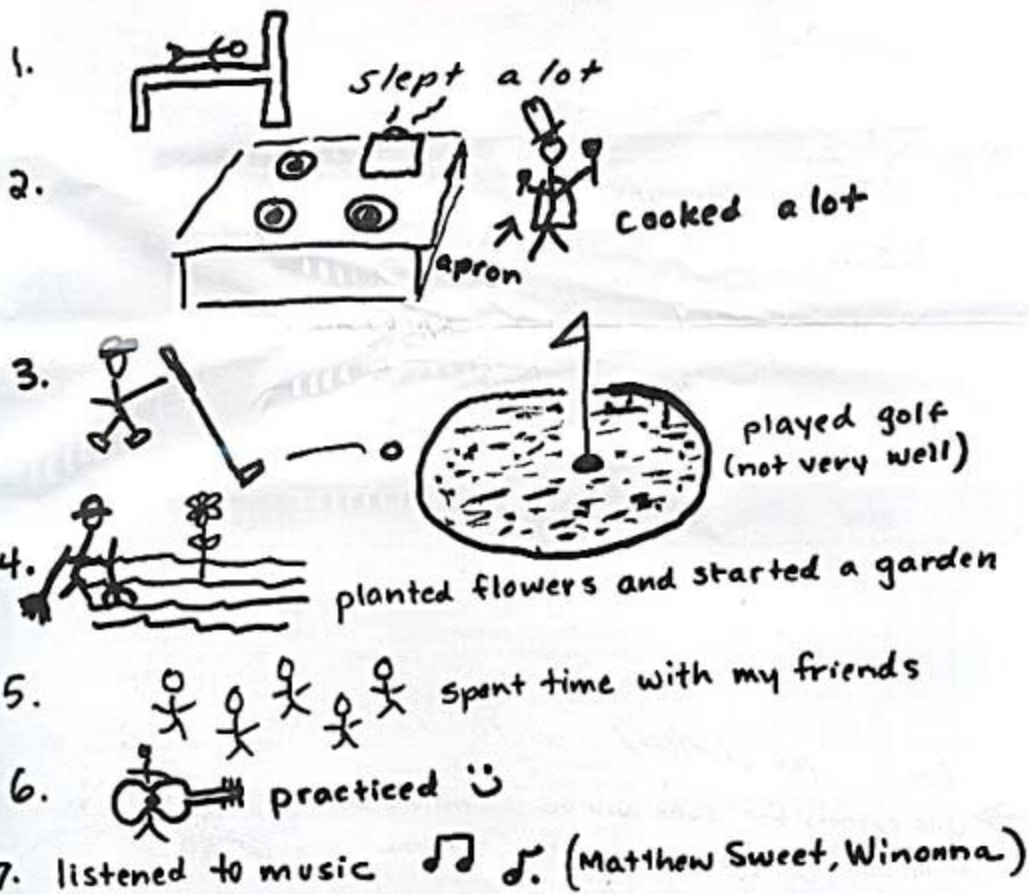 1. slept a lot
2. cooked a lot
apron
3. played golf
(not very well)
4. planted flowers and started a garden
5. spent time with my friends
6. practiced
7. listened to music (Matthew Sweet, Winonna)